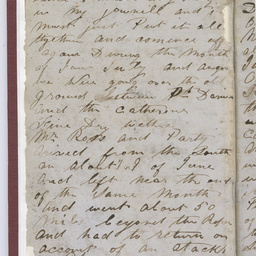 in my journal and I
must just put it all
together and comence off
again During the Month
of June July and Augu
we were going over the old
ground between Pt Darwin
and the Catherine
Fine Dry weather
Mr Ross and Party
arived from the South
on about 21 of June
and left near the end
of the Same Month
and went about 50
Mile beyond the Roper
and had to return on
account of an attack